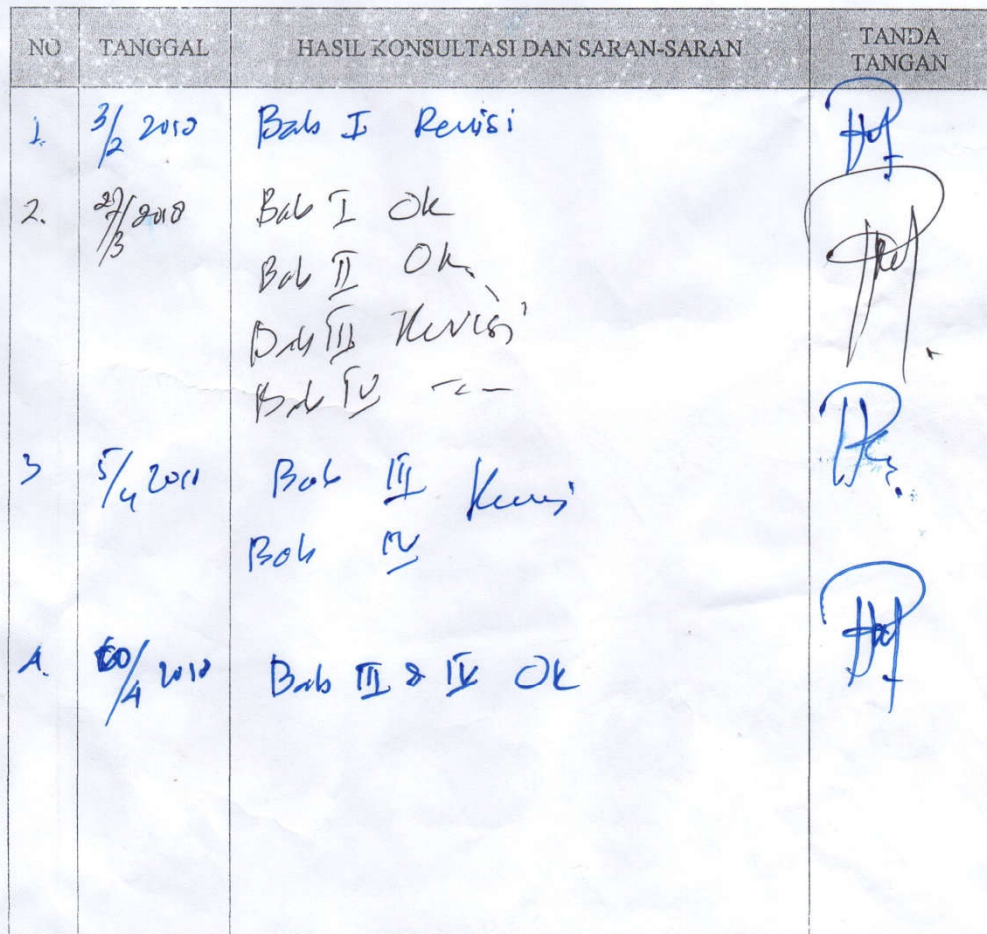 NO TANGGAL HASIL KONSULTASI DAN SARAN-SARAN TANDA TANGAN
1. 3/2 2010 Bab I Revisi
2. 27/3 2010 Bab I Ok
Bab II Ok
Bab III Revisi
Bab IV
3 5/4 2010 Bab III Revisi
Bab IV
4. /4 2010 Bab III & IV Ok